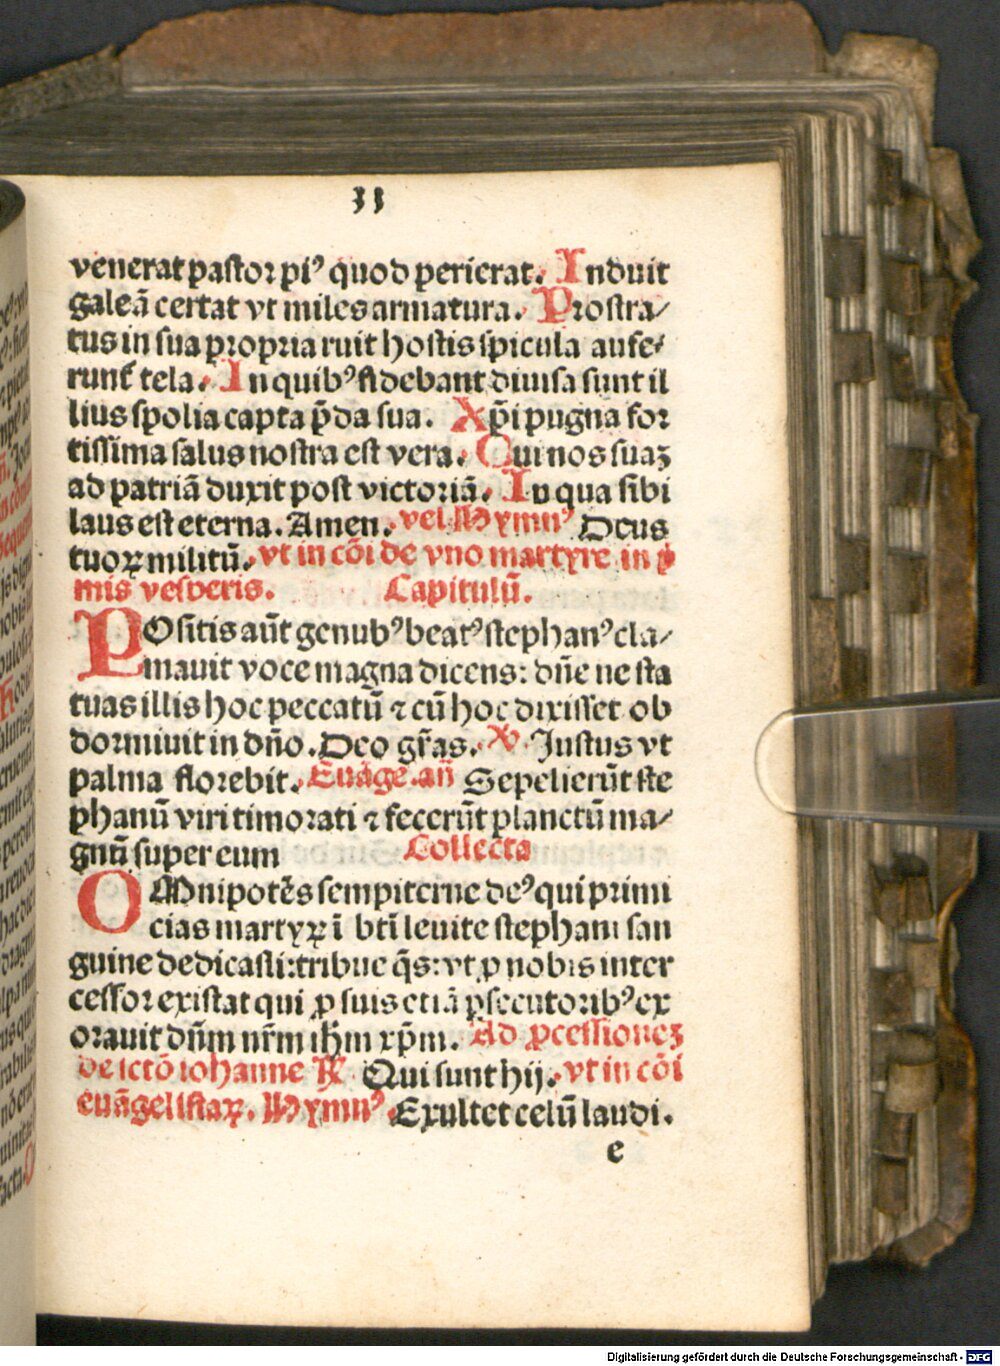 33
venerat pastor piꝰ quod perierat. Induit
galeā certat vt miles armatura. Prostra/
tus in sua propria ruit hostis spicula aufe/
runt᷑ tela. In quibꝰ fidebant diuisa sunt il
lius spolia capta p̄da sua. Xp̄i pugna for
tissima salus nostra est vera. Qui nos suaꝫ
ad patriā duxit post victoriā. In qua sibi
laus est eterna. Amen. vel Hymnꝰ Deus
tuoꝝ militū. vt in cōi de vno martyre in p̄
mis vesperis. Capitulū.
POsitis aūt genubꝰ beatꝰ stephanꝰ cla/
mauit voce magna dicens: dn̄e ne sta
tuas illis hoc peccatū ⁊ cū hoc dixisset ob
dormiuit in dn̄o. Deo gr̄as. ℣ Justus vt
palma florebit. Euāge. an̄ Sepelierūt ste
phanū viri timorati ⁊ fecerūt planctū ma/
gnū super eum Collecta
OMnipotēs sempiterne deꝰ qui primi
cias martyꝝ ī bt̄i leuite stephani san
guine dedicasti: tribue q̄s: vt ꝓ nobis inter
cessor existat qui ꝓ suis etiā ꝑsecutoribꝰ ex
orauit dn̄m nr̄m ih̄m xp̄m. Ad ꝓcessioneꝫ
de sctō iohanne ℟ Qui sunt hij. vt in cōi
euāgelistaꝝ. Hymnꝰ. Exultet celū laudi.
e
Digitalisierung gefördert durch die Deutsche Forschungsgemeinschaft - DFG